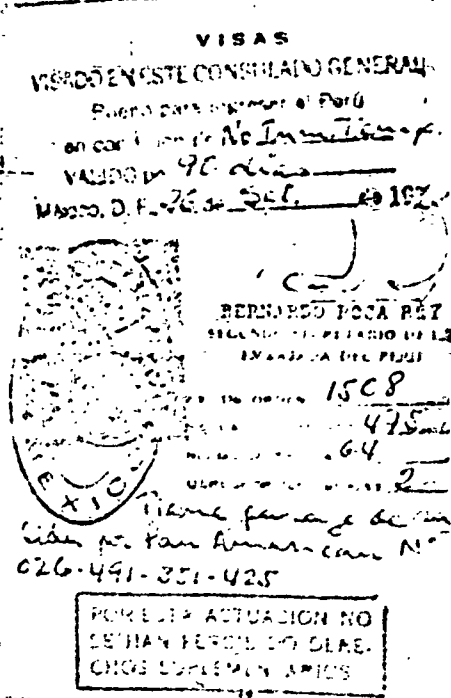 VISAS
VISADO EN ESTE CONSULADO GENERAL
Bueno para ingresar al Perú
en condición de No Inmi
VALIDO por 90 días
México, D. F. 26 de de 197
BERNARDO ROCA REY
SEGUNDO SECRETARIO DE LA
EMBAJADA DEL PERU
DE ORDEN 1508
64
2
MEXICO
Tiene pasaje de
por Pan American N°
026-491-351-425
POR ESTA ACTUACION NO
SE HAN PERCIBIDO DERE-
CHOS SUPLEMENTARIOS